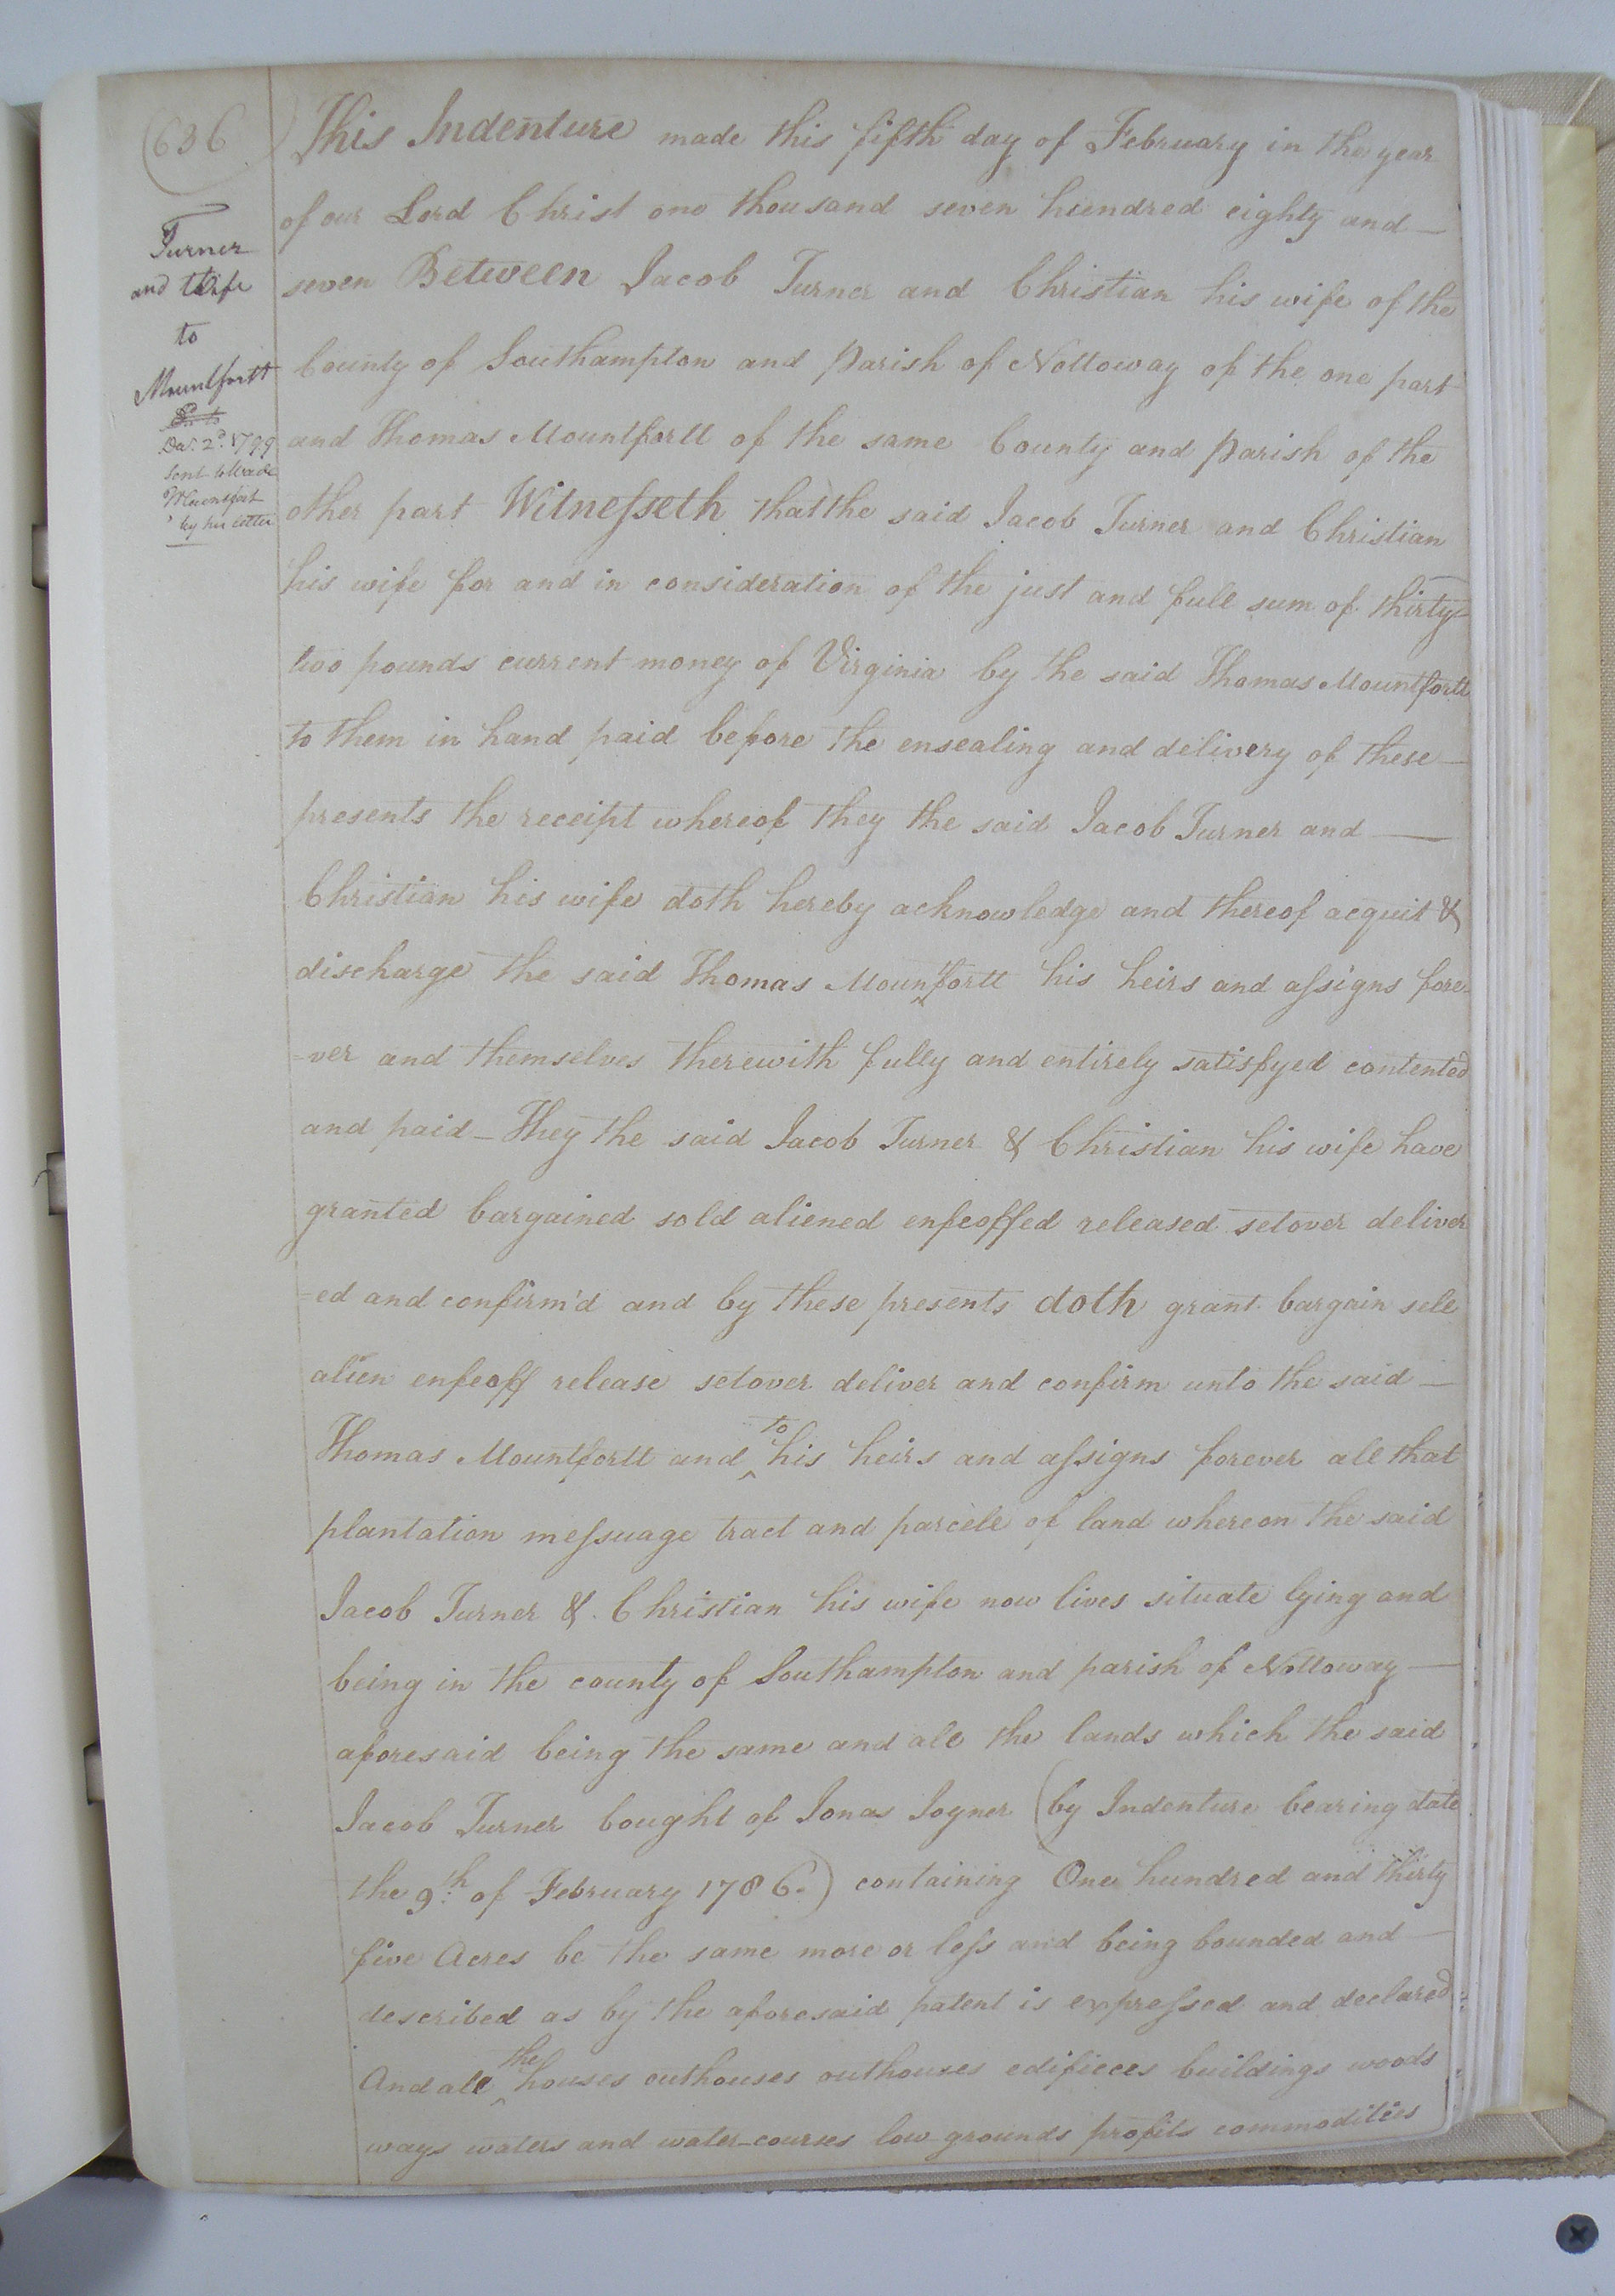 (636)
Turner
and Wife
to
Mountfortt
Dec. 2d. 1799
Sent to Wade
Mountfort
by his letter
This Indenture made this fifth day of February in the year
of our Lord Christ one thousand seven hundred eighty and —
seven Between Jacob Turner and Christian his wife of the
County of Southampton and Parish of Nottoway of the one part
and Thomas Mountfortt of the same County and Parish of the
other part Witnesseth that the said Jacob Turner and Christian
his wife for and in consideration of the just and full sum of thirty=
two pounds current money of Virginia by the said Thomas Mountfortt
to them in hand paid before the ensealing and delivery of these —
presents the receipt whereof they the said Jacob Turner and —
Christian his wife doth hereby acknowledge and thereof acquit &
discharge the said Thomas Mountfortt his heirs and assigns fore=
=ver and themselves therewith fully and entirely satisfyed contented
and paid — They the said Jacob Turner & Christian his wife have
granted bargained sold aliened enfeoffed released setover deliver
=ed and confirm'd and by these presents doth grant bargain sell
alien enfeoff release setover deliver and confirm unto the said —
Thomas Mountfortt and to his heirs and assigns forever all that
plantation messuage tract and parcell of land whereon the said
Jacob Turner & Christian his wife now lives situate lying and
being in the county of Southampton and parish of Nottoway —
aforesaid being the same and all the lands which the said
Jacob Turner bought of Jonas Joyner (by Indenture bearing date
the 9th. of February 1786.) containing One hundred and thirty
five Acres be the same more or less and being bounded and —
described as by the aforesaid patent is expressed and declared:
And all the houses outhouses outhouses edifieces buildings woods
ways waters and water-courses low grounds profits commodities